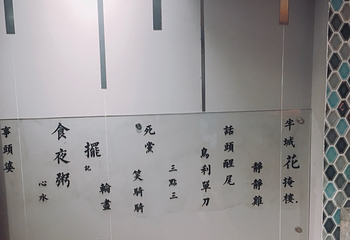 半城花掩樓
靜靜雞
話頭醒尾
烏利單刀
三點三
死黨
笑騎騎
輪盡
擺記
食夜粥
心水
事頭婆